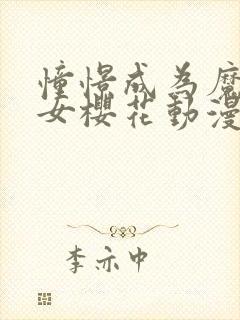 憧憬成為魔
女櫻花動漫
李亦中